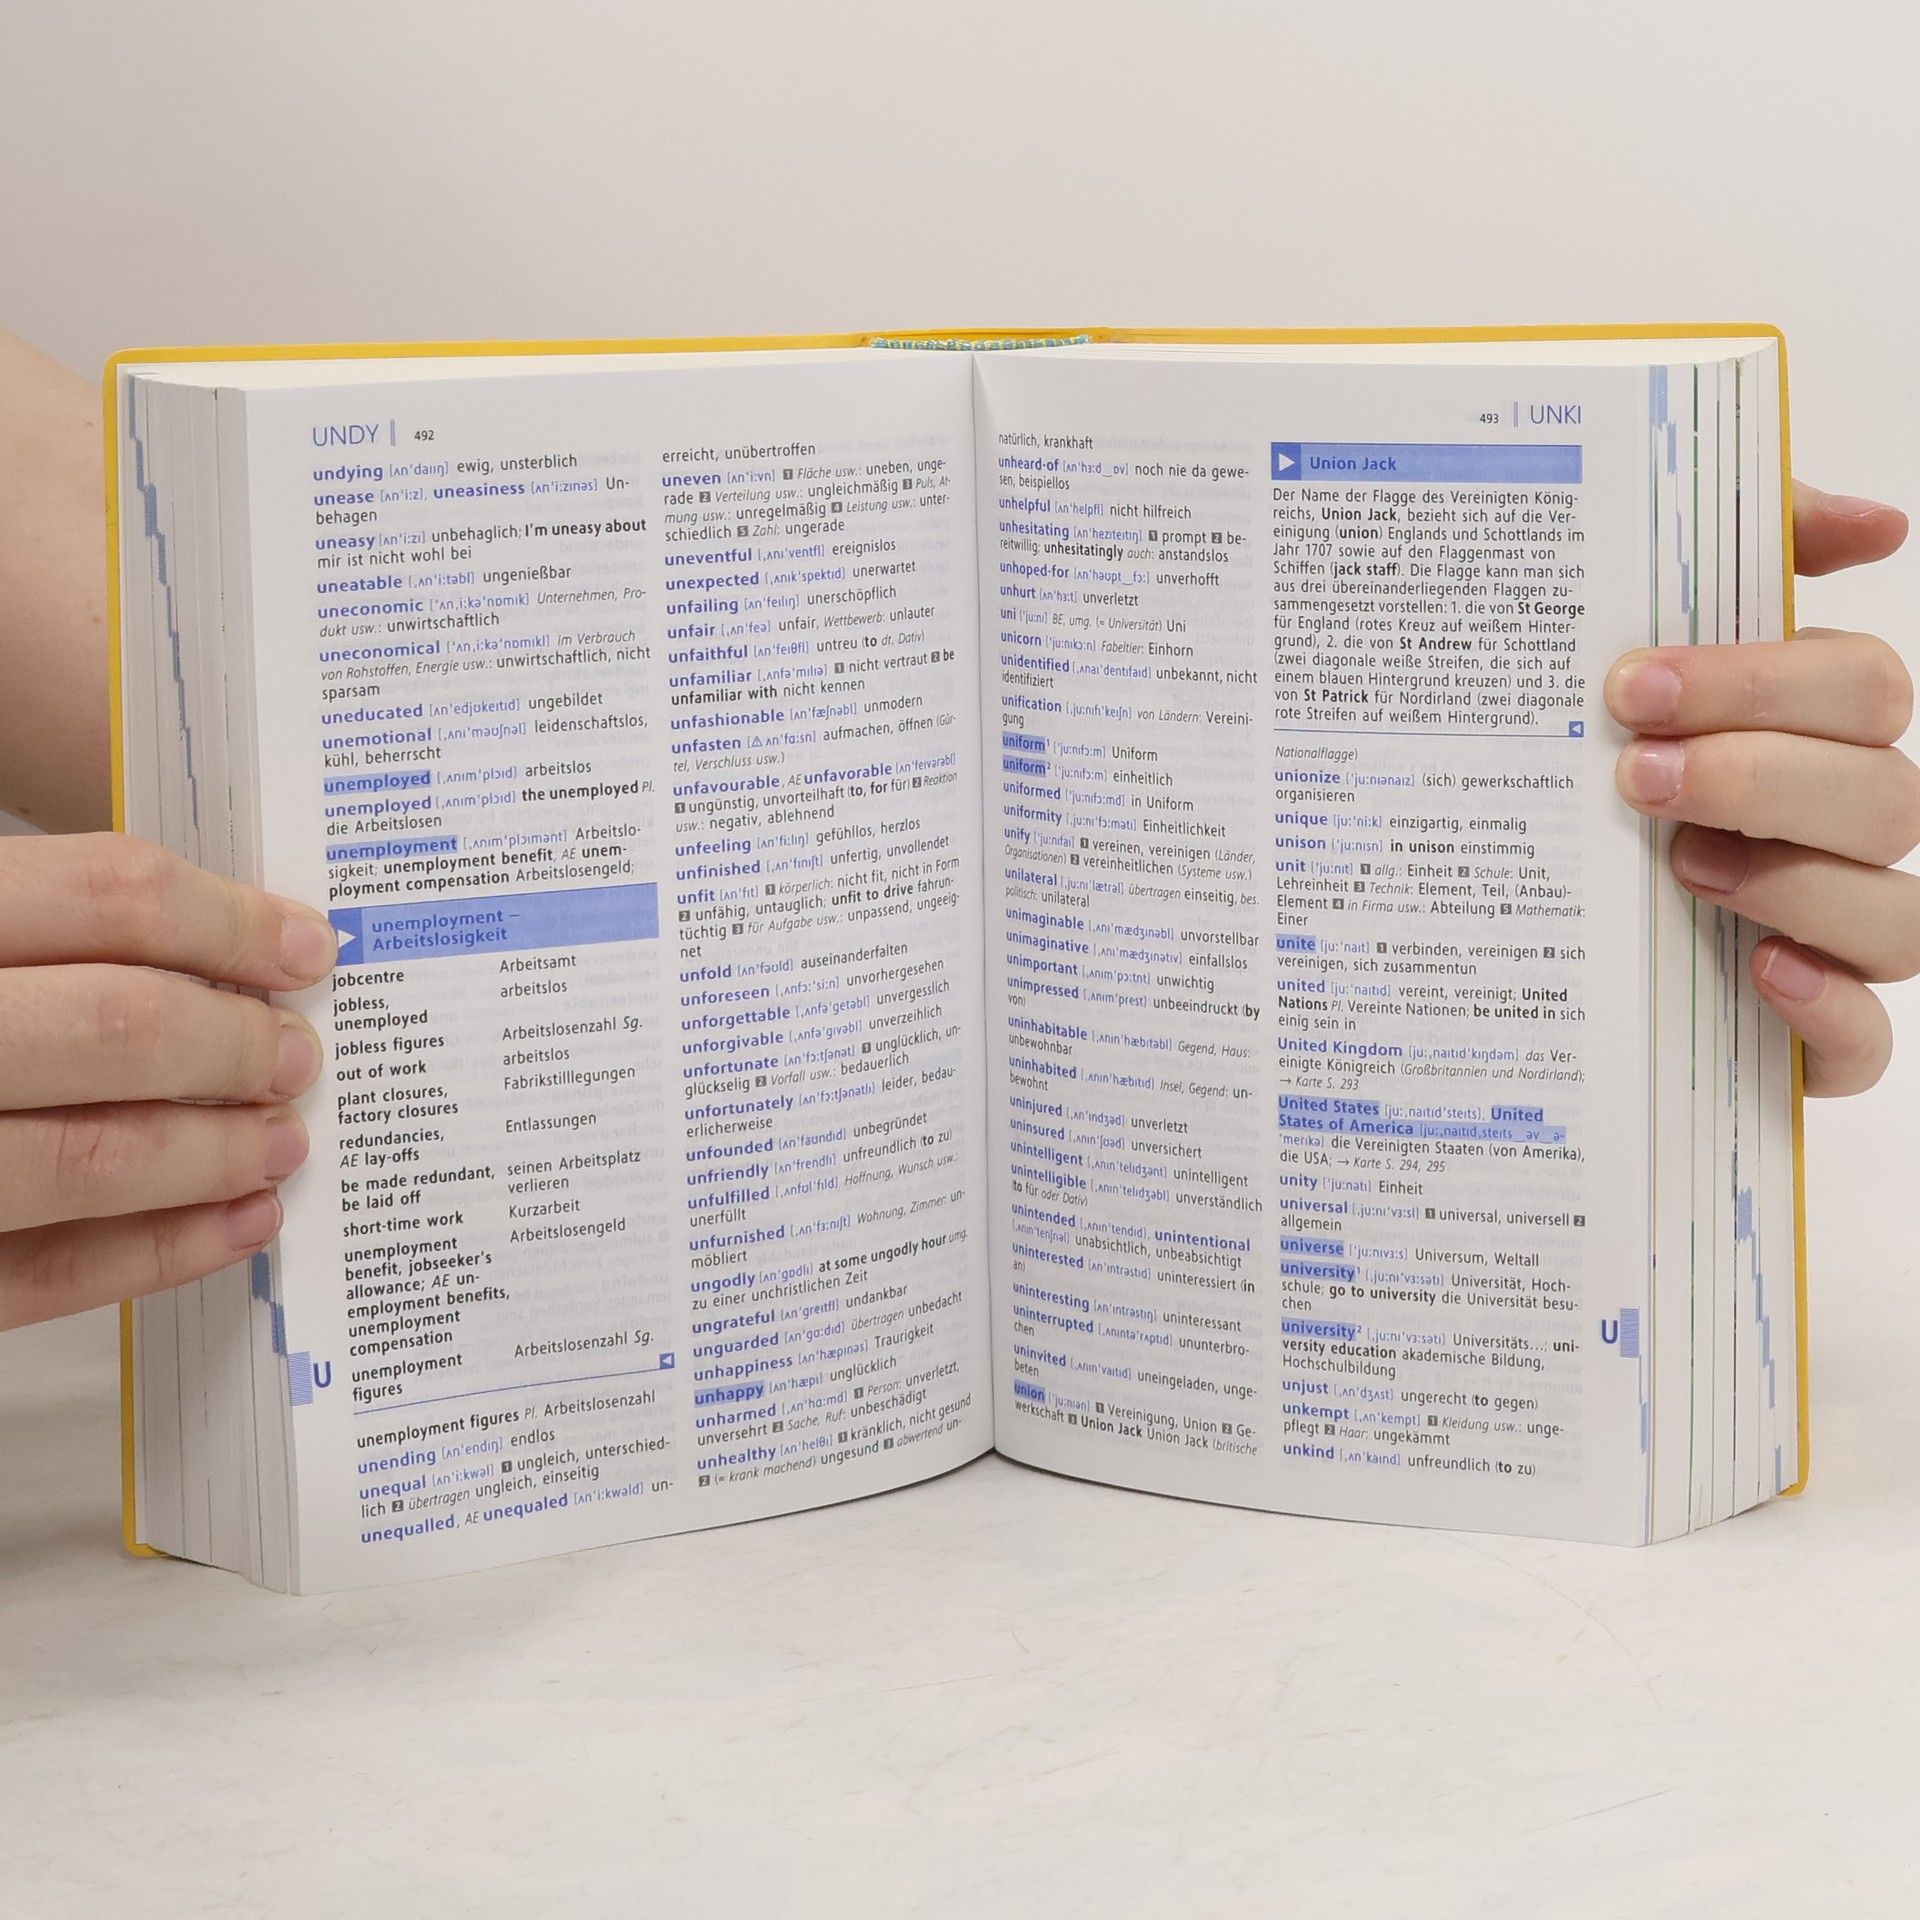 UNDY 492
undying [ʌn'daɪɪŋ] ewig, unsterblich
unease [ʌn'i:z], uneasiness [ʌn'i:zɪnəs] Un-
behagen
uneasy [ʌn'i:zɪ] unbehaglich; I'm uneasy about
mir ist nicht wohl bei
uneatable [ˌʌn'i:təbl] ungenießbar
uneconomic ['ʌnˌi:kə'nɒmɪk] Unternehmen, Pro-
dukt usw.: unwirtschaftlich
uneconomical ['ʌnˌi:kə'nɒmɪkl] im Verbrauch
von Rohstoffen, Energie usw.: unwirtschaftlich, nicht
sparsam
uneducated [ʌn'edjʊkeɪtɪd] ungebildet
unemotional [ˌʌnɪ'məʊʃnəl] leidenschaftslos,
kühl, beherrscht
unemployed [ˌʌnɪm'plɔɪd] arbeitslos
unemployed [ˌʌnɪm'plɔɪd] the unemployed Pl.
die Arbeitslosen
unemployment [ˌʌnɪm'plɔɪmənt] Arbeitslo-
sigkeit; unemployment benefit, AE unem-
ployment compensation Arbeitslosengeld;
unemployment –
Arbeitslosigkeit
jobcentre Arbeitsamt
jobless, arbeitslos
unemployed
jobless figures Arbeitslosenzahl Sg.
out of work arbeitslos
plant closures, Fabrikstilllegungen
factory closures
redundancies, Entlassungen
AE lay-offs
be made redundant, seinen Arbeitsplatz
be laid off verlieren
short-time work Kurzarbeit
unemployment Arbeitslosengeld
benefit, jobseeker's
allowance; AE un-
employment benefits,
unemployment
compensation
unemployment Arbeitslosenzahl Sg.
figures
unemployment figures Pl. Arbeitslosenzahl
unending [ʌn'endɪŋ] endlos
unequal [ʌn'i:kwəl] 1 ungleich, unterschied-
lich 2 übertragen ungleich, einseitig
unequalled, AE unequaled [ʌn'i:kwəld] un-
U
erreicht, unübertroffen
uneven [ʌn'i:vn] 1 Fläche usw.: uneben, unge-
rade 2 Verteilung usw.: ungleichmäßig 3 Puls, At-
mung usw.: unregelmäßig 4 Leistung usw.: unter-
schiedlich 5 Zahl: ungerade
uneventful [ˌʌnɪ'ventfl] ereignislos
unexpected [ˌʌnɪk'spektɪd] unerwartet
unfailing [ʌn'feɪlɪŋ] unerschöpflich
unfair [ˌʌn'feə] unfair, Wettbewerb: unlauter
unfaithful [ʌn'feɪθfl] untreu (to dt. Dativ)
unfamiliar [ˌʌnfə'mɪlɪə] 1 nicht vertraut 2 be
unfamiliar with nicht kennen
unfashionable [ʌn'fæʃnəbl] unmodern
unfasten [⚠ ʌn'fɑ:sn] aufmachen, öffnen (Gür-
tel, Verschluss usw.)
unfavourable, AE unfavorable [ʌn'feɪvərəbl]
1 ungünstig, unvorteilhaft (to, for für) 2 Reaktion
usw.: negativ, ablehnend
unfeeling [ʌn'fi:lɪŋ] gefühllos, herzlos
unfinished [ˌʌn'fɪnɪʃt] unfertig, unvollendet
unfit [ʌn'fɪt] 1 körperlich: nicht fit, nicht in Form
2 unfähig, untauglich; unfit to drive fahrun-
tüchtig 3 für Aufgabe usw.: unpassend, ungeeig-
net
unfold [ʌn'fəʊld] auseinanderfalten
unforeseen [ˌʌnfɔ:'si:n] unvorhergesehen
unforgettable [ˌʌnfə'getəbl] unvergesslich
unforgivable [ˌʌnfə'gɪvəbl] unverzeihlich
unfortunate [ʌn'fɔ:tʃənət] 1 unglücklich, un-
glückselig 2 Vorfall usw.: bedauerlich
unfortunately [ʌn'fɔ:tʃənətlɪ] leider, bedau-
erlicherweise
unfounded [ʌn'faʊndɪd] unbegründet
unfriendly [ʌn'frendlɪ] unfreundlich (to zu)
unfulfilled [ˌʌnfʊl'fɪld] Hoffnung, Wunsch usw.:
unerfüllt
unfurnished [ˌʌn'fɜ:nɪʃt] Wohnung, Zimmer: un-
möbliert
ungodly [ʌn'gɒdlɪ] at some ungodly hour umg.
zu einer unchristlichen Zeit
ungrateful [ʌn'greɪtfl] undankbar
unguarded [ˌʌn'gɑ:dɪd] übertragen unbedacht
unhappiness [ʌn'hæpɪnəs] Traurigkeit
unhappy [ʌn'hæpɪ] unglücklich
unharmed [ˌʌn'hɑ:md] 1 Person: unverletzt,
unversehrt 2 Sache, Ruf: unbeschädigt
unhealthy [ʌn'helθɪ] 1 kränklich, nicht gesund
2 (= krank machend) ungesund 3 abwertend un-
493 UNKI
natürlich, krankhaft
unheard-of [ʌn'hɜ:d_ɒv] noch nie da gewe-
sen, beispiellos
unhelpful [ʌn'helpfl] nicht hilfreich
unhesitating [ʌn'hezɪteɪtɪŋ] 1 prompt 2 be-
reitwillig; unhesitatingly auch: anstandslos
unhoped-for [ʌn'həʊpt_fɔ:] unverhofft
unhurt [ʌn'hɜ:t] unverletzt
uni ['ju:nɪ] BE, umg. (= Universität) Uni
unicorn ['ju:nɪkɔ:n] Fabeltier: Einhorn
unidentified [ˌʌnaɪ'dentɪfaɪd] unbekannt, nicht
identifiziert
unification [ˌju:nɪfɪ'keɪʃn] von Ländern: Vereini-
gung
uniform¹ ['ju:nɪfɔ:m] Uniform
uniform² ['ju:nɪfɔ:m] einheitlich
uniformed ['ju:nɪfɔ:md] in Uniform
uniformity [ˌju:nɪ'fɔ:mətɪ] Einheitlichkeit
unify ['ju:nɪfaɪ] 1 vereinen, vereinigen (Länder,
Organisationen) 2 vereinheitlichen (Systeme usw.)
unilateral [ˌju:nɪ'lætrəl] übertragen einseitig, bes.
politisch: unilateral
unimaginable [ˌʌnɪ'mædʒɪnəbl] unvorstellbar
unimaginative [ˌʌnɪ'mædʒɪnətɪv] einfallslos
unimportant [ˌʌnɪm'pɔ:tnt] unwichtig
unimpressed [ˌʌnɪm'prest] unbeeindruckt (by
von)
uninhabitable [ˌʌnɪn'hæbɪtəbl] Gegend, Haus:
unbewohnbar
uninhabited [ˌʌnɪn'hæbɪtɪd] Insel, Gegend: un-
bewohnt
uninjured [ˌʌn'ɪndʒəd] unverletzt
uninsured [ˌʌnɪn'ʃʊəd] unversichert
unintelligent [ˌʌnɪn'telɪdʒənt] unintelligent
unintelligible [ˌʌnɪn'telɪdʒəbl] unverständlich
(to für oder Dativ)
unintended [ˌʌnɪn'tendɪd], unintentional
[ˌʌnɪn'tenʃnəl] unabsichtlich, unbeabsichtigt
uninterested [ʌn'ɪntrəstɪd] uninteressiert (in
an)
uninteresting [ʌn'ɪntrəstɪŋ] uninteressant
uninterrupted [ˌʌnɪntə'rʌptɪd] ununterbro-
chen
uninvited [ˌʌnɪn'vaɪtɪd] uneingeladen, unge-
beten
union ['ju:nɪən] 1 Vereinigung, Union 2 Ge-
werkschaft 3 Union Jack Union Jack (britische
Union Jack
Der Name der Flagge des Vereinigten König-
reichs, Union Jack, bezieht sich auf die Ver-
einigung (union) Englands und Schottlands im
Jahr 1707 sowie auf den Flaggenmast von
Schiffen (jack staff). Die Flagge kann man sich
aus drei übereinanderliegenden Flaggen zu-
sammengesetzt vorstellen: 1. die von St George
für England (rotes Kreuz auf weißem Hinter-
grund), 2. die von St Andrew für Schottland
(zwei diagonale weiße Streifen, die sich auf
einem blauen Hintergrund kreuzen) und 3. die
von St Patrick für Nordirland (zwei diagonale
rote Streifen auf weißem Hintergrund).
Nationalflagge)
unionize ['ju:nɪənaɪz] (sich) gewerkschaftlich
organisieren
unique [ju:'ni:k] einzigartig, einmalig
unison ['ju:nɪsn] in unison einstimmig
unit ['ju:nɪt] 1 allg.: Einheit 2 Schule: Unit,
Lehreinheit 3 Technik: Element, Teil, (Anbau)-
Element 4 in Firma usw.: Abteilung 5 Mathematik:
Einer
unite [ju:'naɪt] 1 verbinden, vereinigen 2 sich
vereinigen, sich zusammentun
united [ju:'naɪtɪd] vereint, vereinigt; United
Nations Pl. Vereinte Nationen; be united in sich
einig sein in
United Kingdom [ju:ˌnaɪtɪd'kɪŋdəm] das Ver-
einigte Königreich (Großbritannien und Nordirland);
→ Karte S. 293
United States [ju:ˌnaɪtɪd'steɪts], United
States of America [ju:ˌnaɪtɪdˌsteɪts_əv_ə-
'merɪkə] die Vereinigten Staaten (von Amerika),
die USA; → Karte S. 294, 295
unity ['ju:nətɪ] Einheit
universal [ˌju:nɪ'vɜ:sl] 1 universal, universell 2
allgemein
universe ['ju:nɪvɜ:s] Universum, Weltall
university¹ [ˌju:nɪ'vɜ:sətɪ] Universität, Hoch-
schule; go to university die Universität besu-
chen
university² [ˌju:nɪ'vɜ:sətɪ] Universitäts...; uni-
versity education akademische Bildung,
Hochschulbildung
unjust [ˌʌn'dʒʌst] ungerecht (to gegen)
unkempt [ˌʌn'kempt] 1 Kleidung usw.: unge-
pflegt 2 Haar: ungekämmt
unkind [ˌʌn'kaɪnd] unfreundlich (to zu)
U